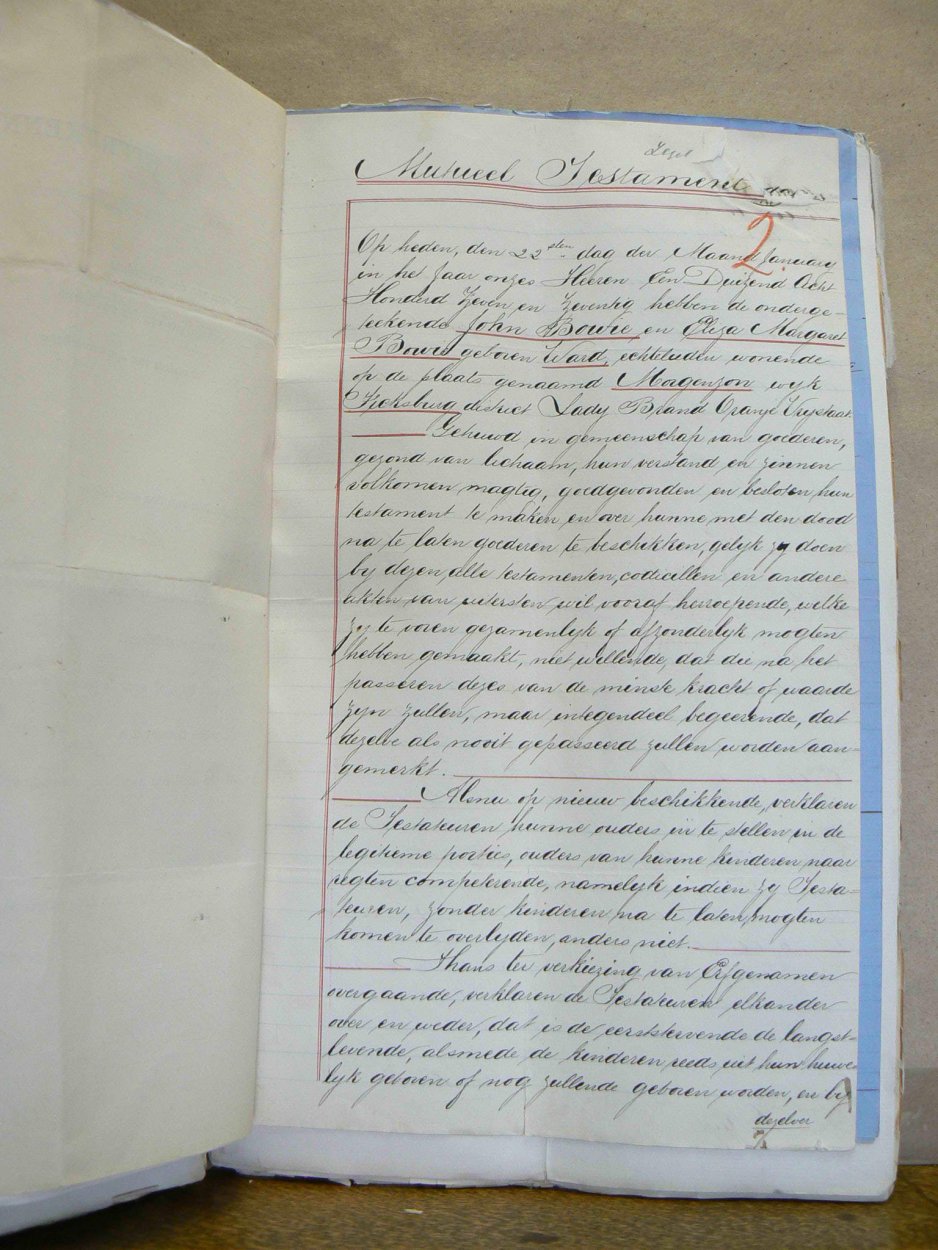 Zegel
Mutueel Testament
2.
Op heden, den 22sten dag der Maand January
in het Jaar onzes Heeren Een Duizend Acht
Honderd Zeven en Zeventig hebben de onderge-
teekende John Bowie en Eliza Margaret
Bowie geboren Ward, echtelieden wonende
op de plaats genaamd Morgenzon wyk
district Lady Brand Oranje Vrystaat.
Gehuwd in gemeenschap van goederen,
gezond van lichaam, hun verstand en zinnen
volkomen magtig, goedgevonden en besloten hun
testament te maken en over hunne met den dood
na te laten goederen te beschikken, gelyk zy doen
by dezen, alle testamenten, codicillen en andere
akten van uitersten wil vooraf herroepende, welke
zy te voren gezamenlyk of afzonderlyk mogten
hebben gemaakt, niet willende, dat die na het
passeren dezes van de minste kracht of waarde
zyn zullen, maar integendeel begeerende, dat
dezelve als nooit gepasseerd zullen worden aan-
gemerkt.
Alsnu op nieuw beschikkende, verklaren
de Testateuren hunne ouders in te stellen in de
legitieme portie, ouders van hunne kinderen naar
regten competerende, namelyk indien zy Testa-
teuren, zonder kinderen na te laten, mogten
komen te overlyden, anders niet.
Thans ter verkiezing van Erfgenamen
overgaande, verklaren de Testateuren elkander
over en weder, dat is de eerststervende de langst-
levende, alsmede de kinderen reeds uit hun huwe-
lyk geboren of nog zullende geboren worden, en by
dezelver